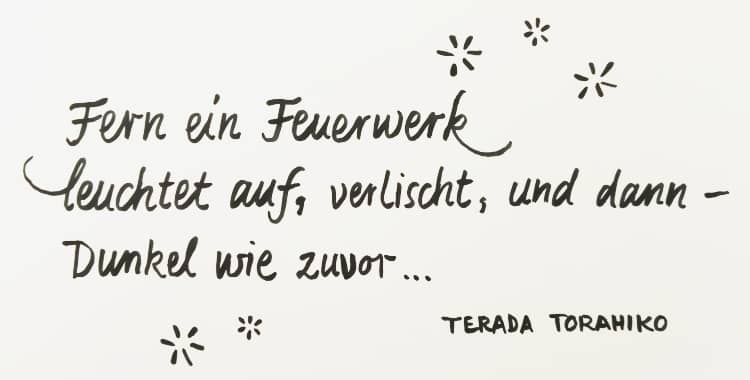 Fern ein Feuerwerk
leuchtet auf, verlischt, und dann –
Dunkel wie zuvor...
TERADA TORAHIKO